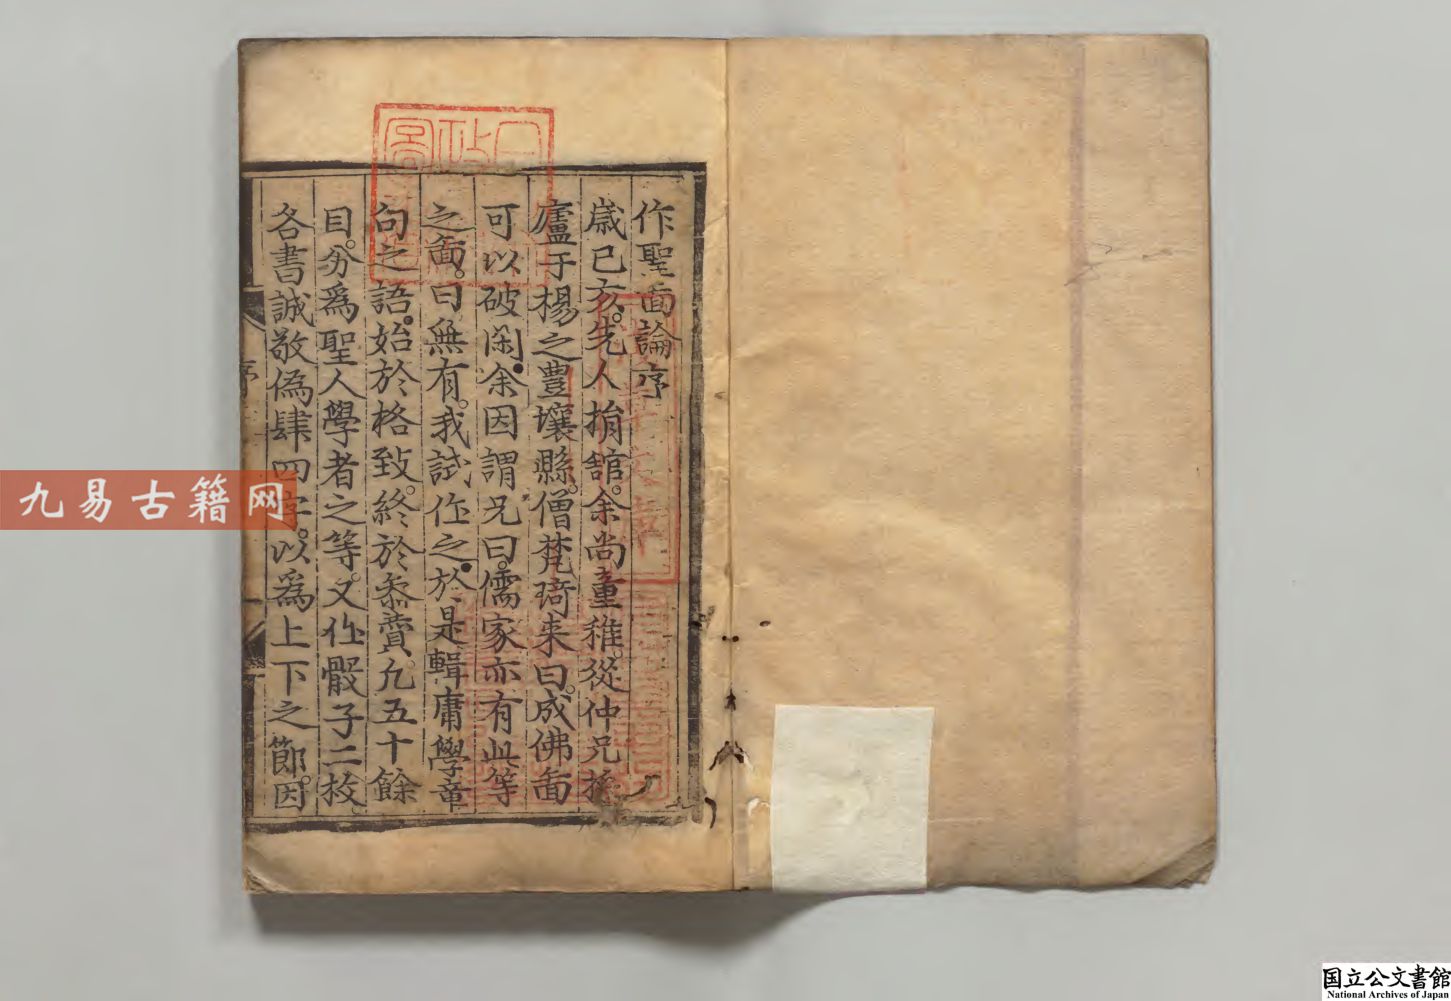 作聖啚論序
歲己亥。先人捐舘。余尚童稚。從仲兄
廬于楊之豊壤縣。僧梵琦来曰。成佛啚
可以破閑。余因謂兄曰。儒家亦有此等
之啚。曰無有。我試作之。於是輯庸學章
句之語。始於格致。終於叅賛。凢五十餘
目。分爲聖人學者之等。又作骰子二枚。
各書誠敬偽肆四字。以爲上下之節。因
序
九易古籍网
国立公文書館
National Archives of Japan